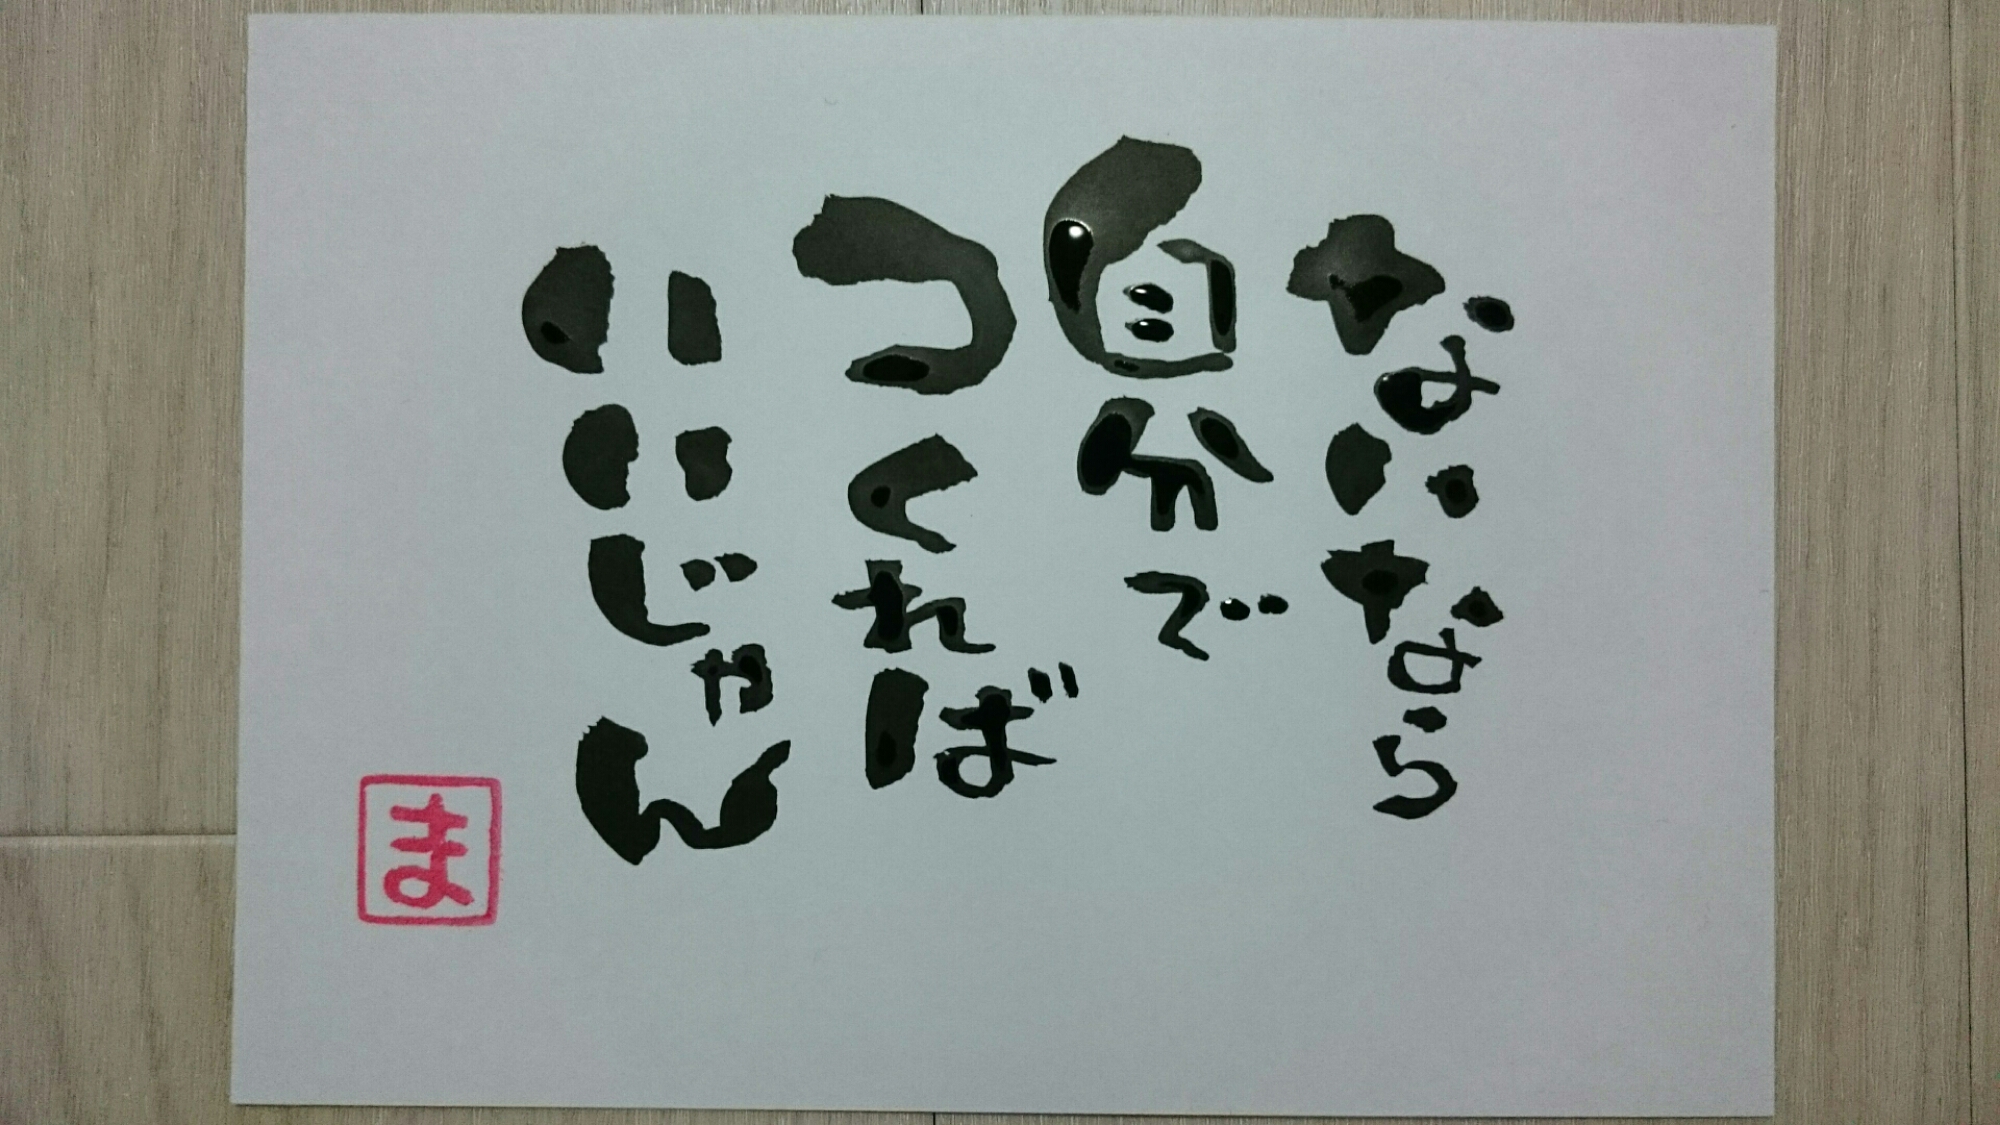 ないなら
自分で
つくれば
いいじゃん
ま